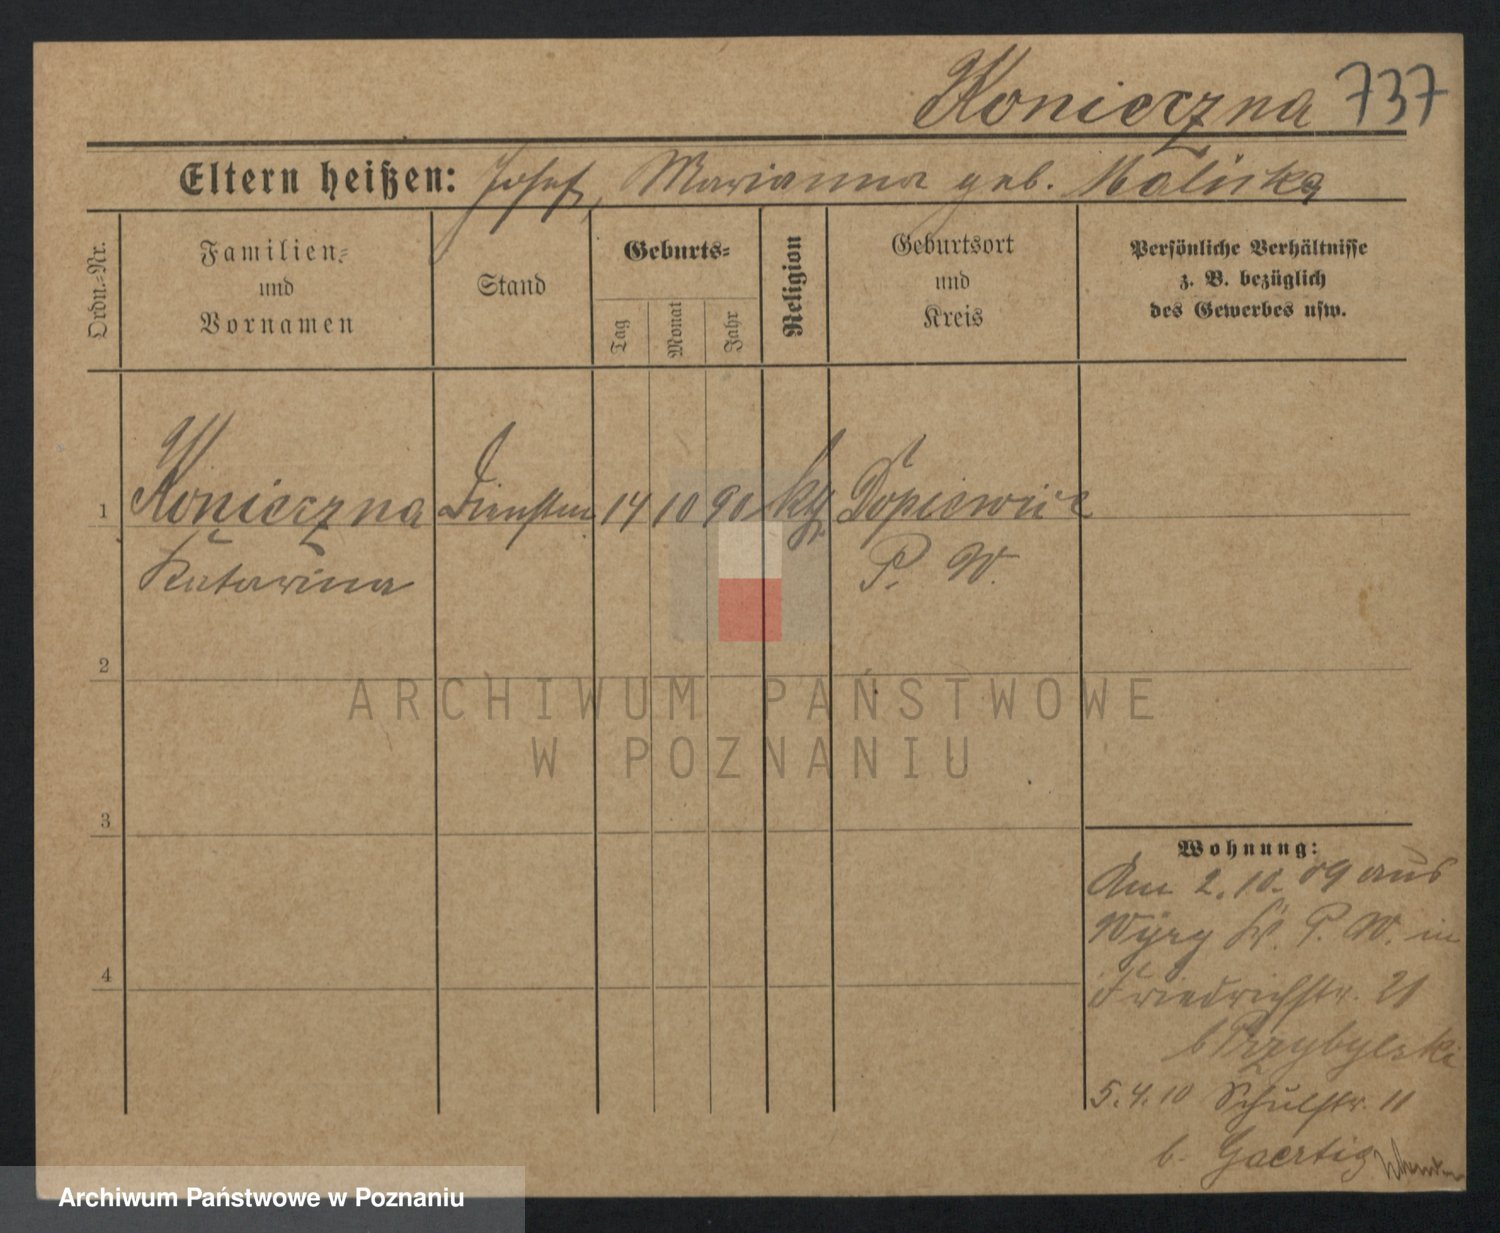 Konieczna 737
Eltern heißen: Josef, Marianna geb. Maliska
Ordn.-Nr.
Familien-
und
Vornamen
Stand
Geburts-
Tag
Monat
Jahr
Religion
Geburtsort
und
Kreis
Persönliche Verhältnisse
z. B. bezüglich
des Gewerbes usw.
1 Konieczna Dienstm 14 10 90 kg Dopiewiec
Katarina P. W.
2
ARCHIWUM PAŃSTWOWE
W POZNANIU
3
4
Wohnung:
Am 2.10.09 aus
Wyry Kr. P. W. in
Friedrichstr. 21
b Przybylski
5.4.10 Schulstr. 11
b. Gaertig
Archiwum Państwowe w Poznaniu